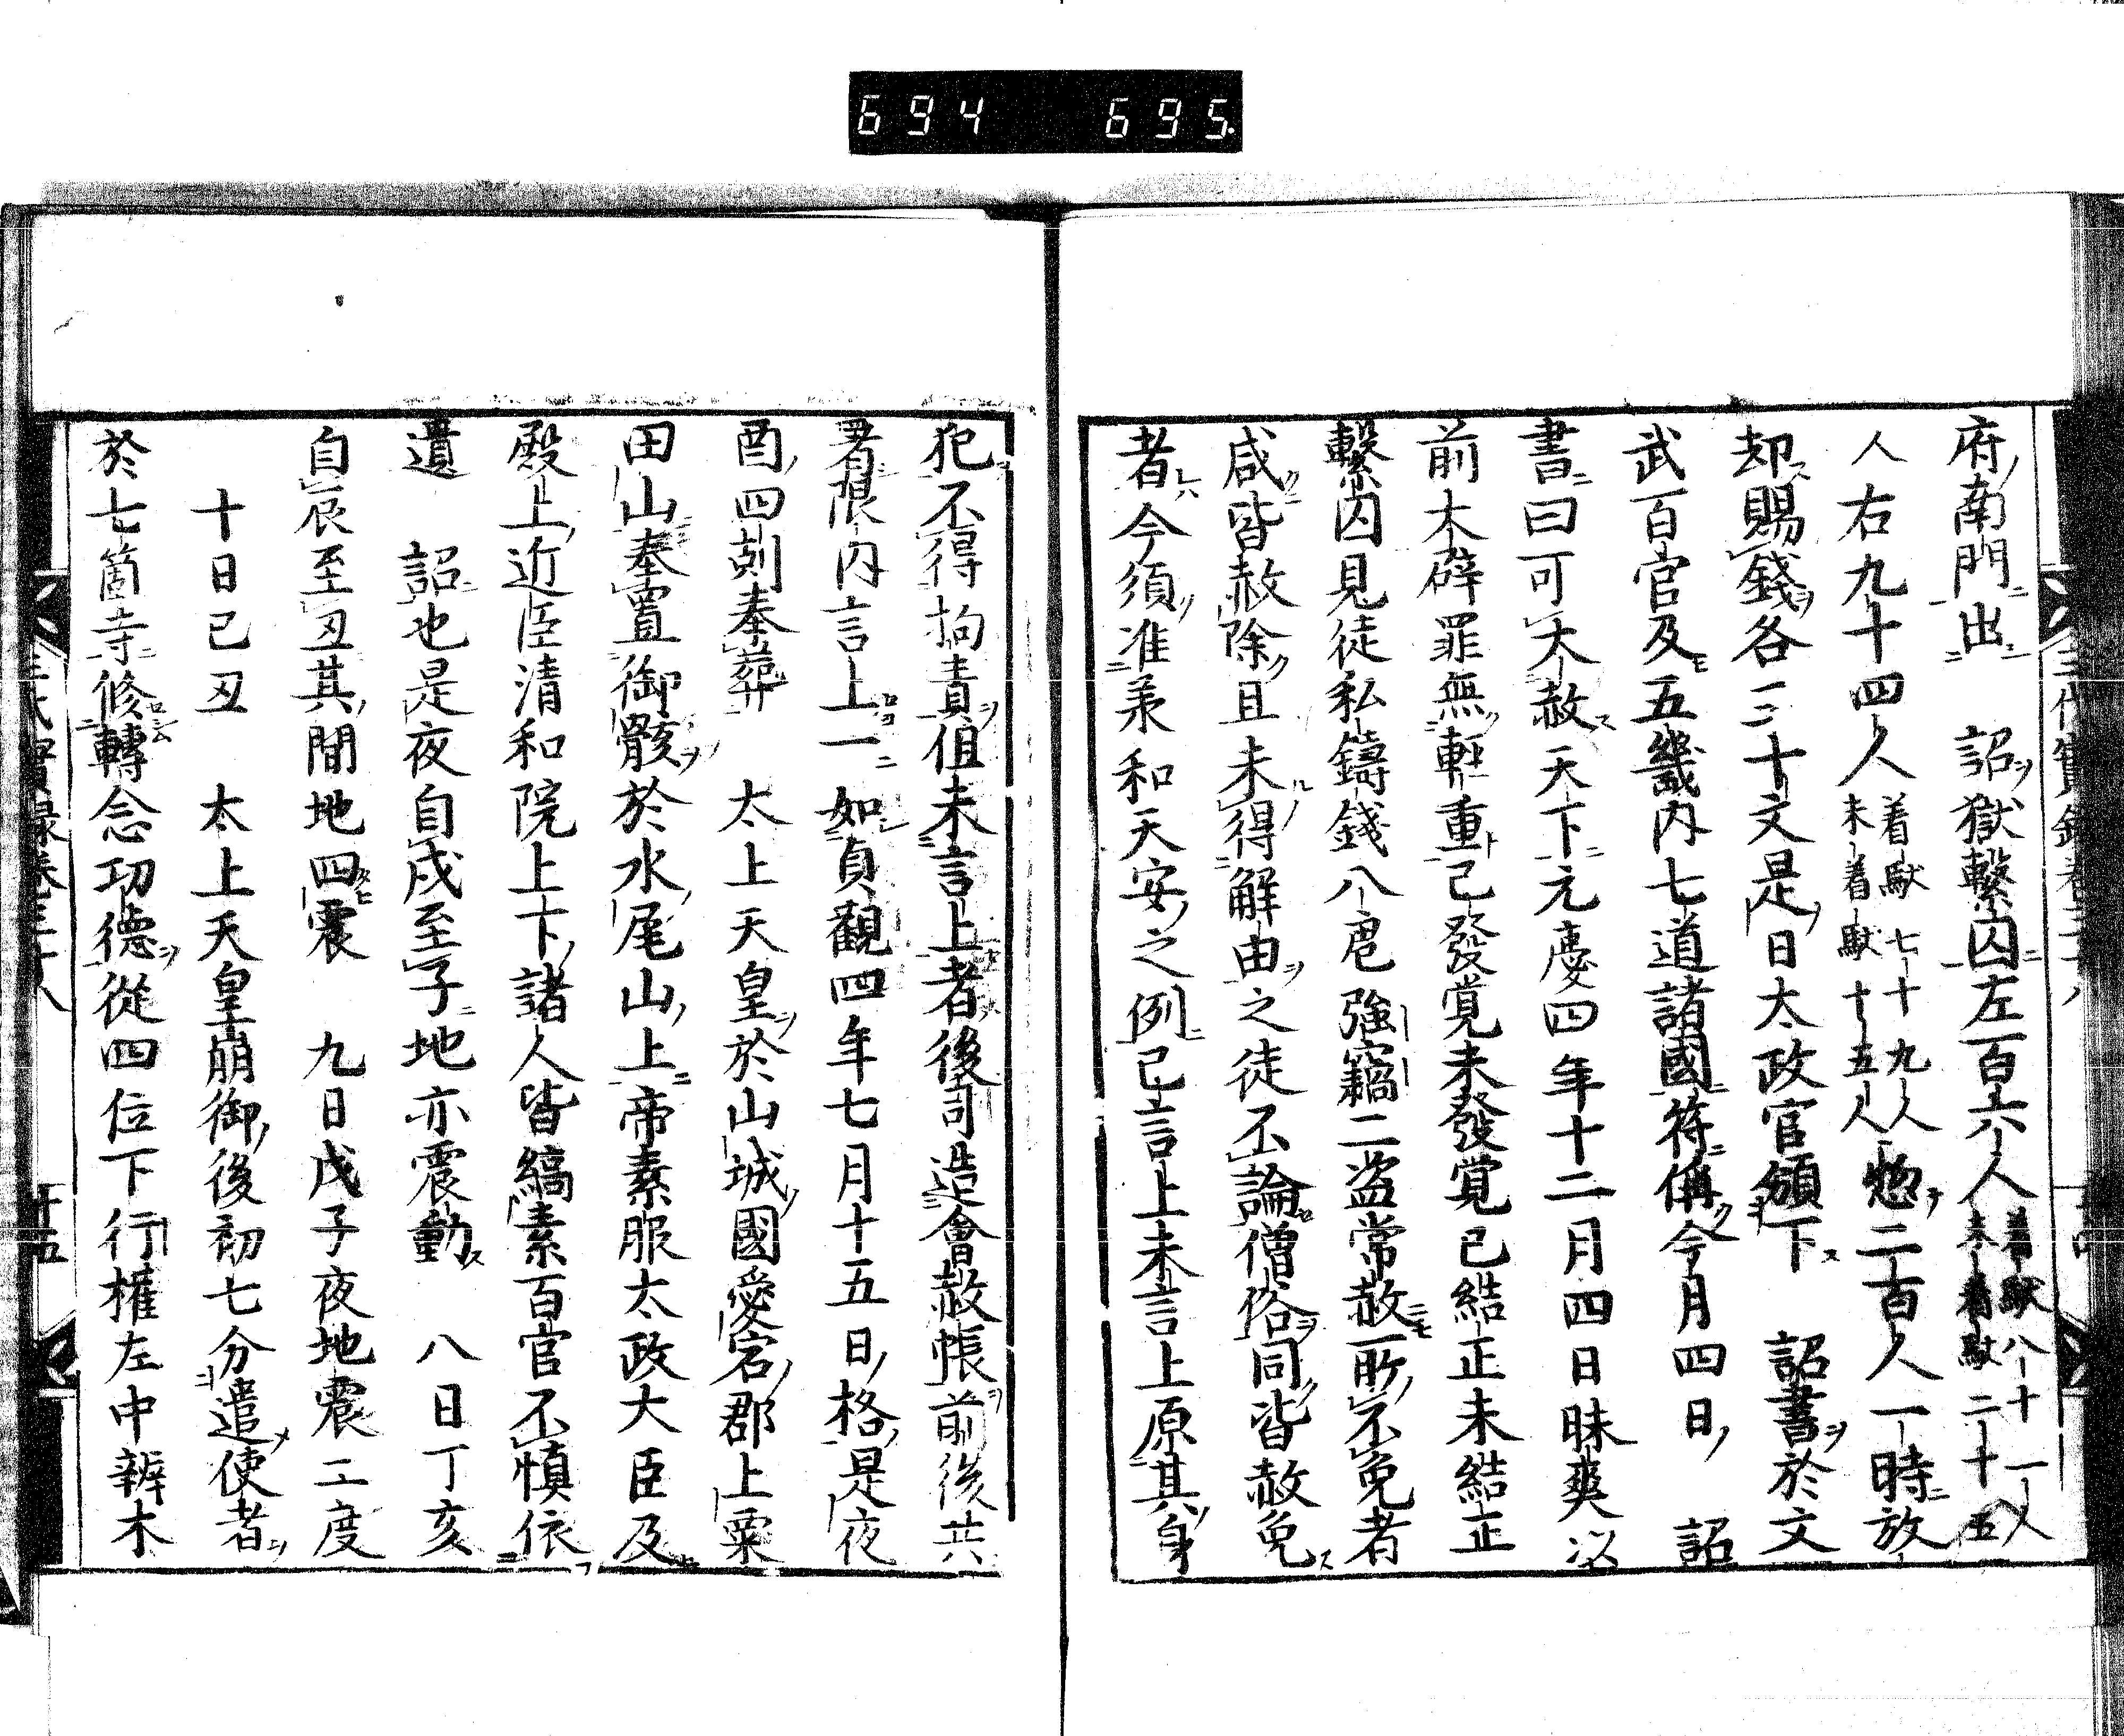 694 695
府南門出 詔獄繫囚左百六人着馱八十一人未着馱二十五
人右九十四人着馱七十九人未着馱十五人惣二百人一時放
却賜錢各三十文是日太政官頒下 詔書於文
武百官及五畿内七道諸國符偁今月四日 詔
書曰可大赦天下元慶四年十二月四日昧爽以
前木辟罪無輕重已發覚未發覚已結正未結正
繫囚見徒私鑄錢八虐強竊二盗常赦所不免者
咸皆赦除且未得解由之徒不論僧俗同皆赦免
者今須准兼和天安之例已言上未言上原其身
犯不得拘責但未言上者後司造會赦帳前後共
署限内言上一如貞觀四年七月十五日格是夜
酉四剋奉葬 太上天皇於山城國愛宕郡上粟
田山奉置御骸於水尾山上帝素服太政大臣及
殿上近臣清和院上下諸人皆縞素百官不慎依
遺 詔也是夜自戌至子地亦震動 八日丁亥
自辰至丑其間地四震 九日戊子夜地震二度
十日己丑 太上天皇崩御後初七分遣使者
於七箇寺修轉念功德從四位下行權左中辨木